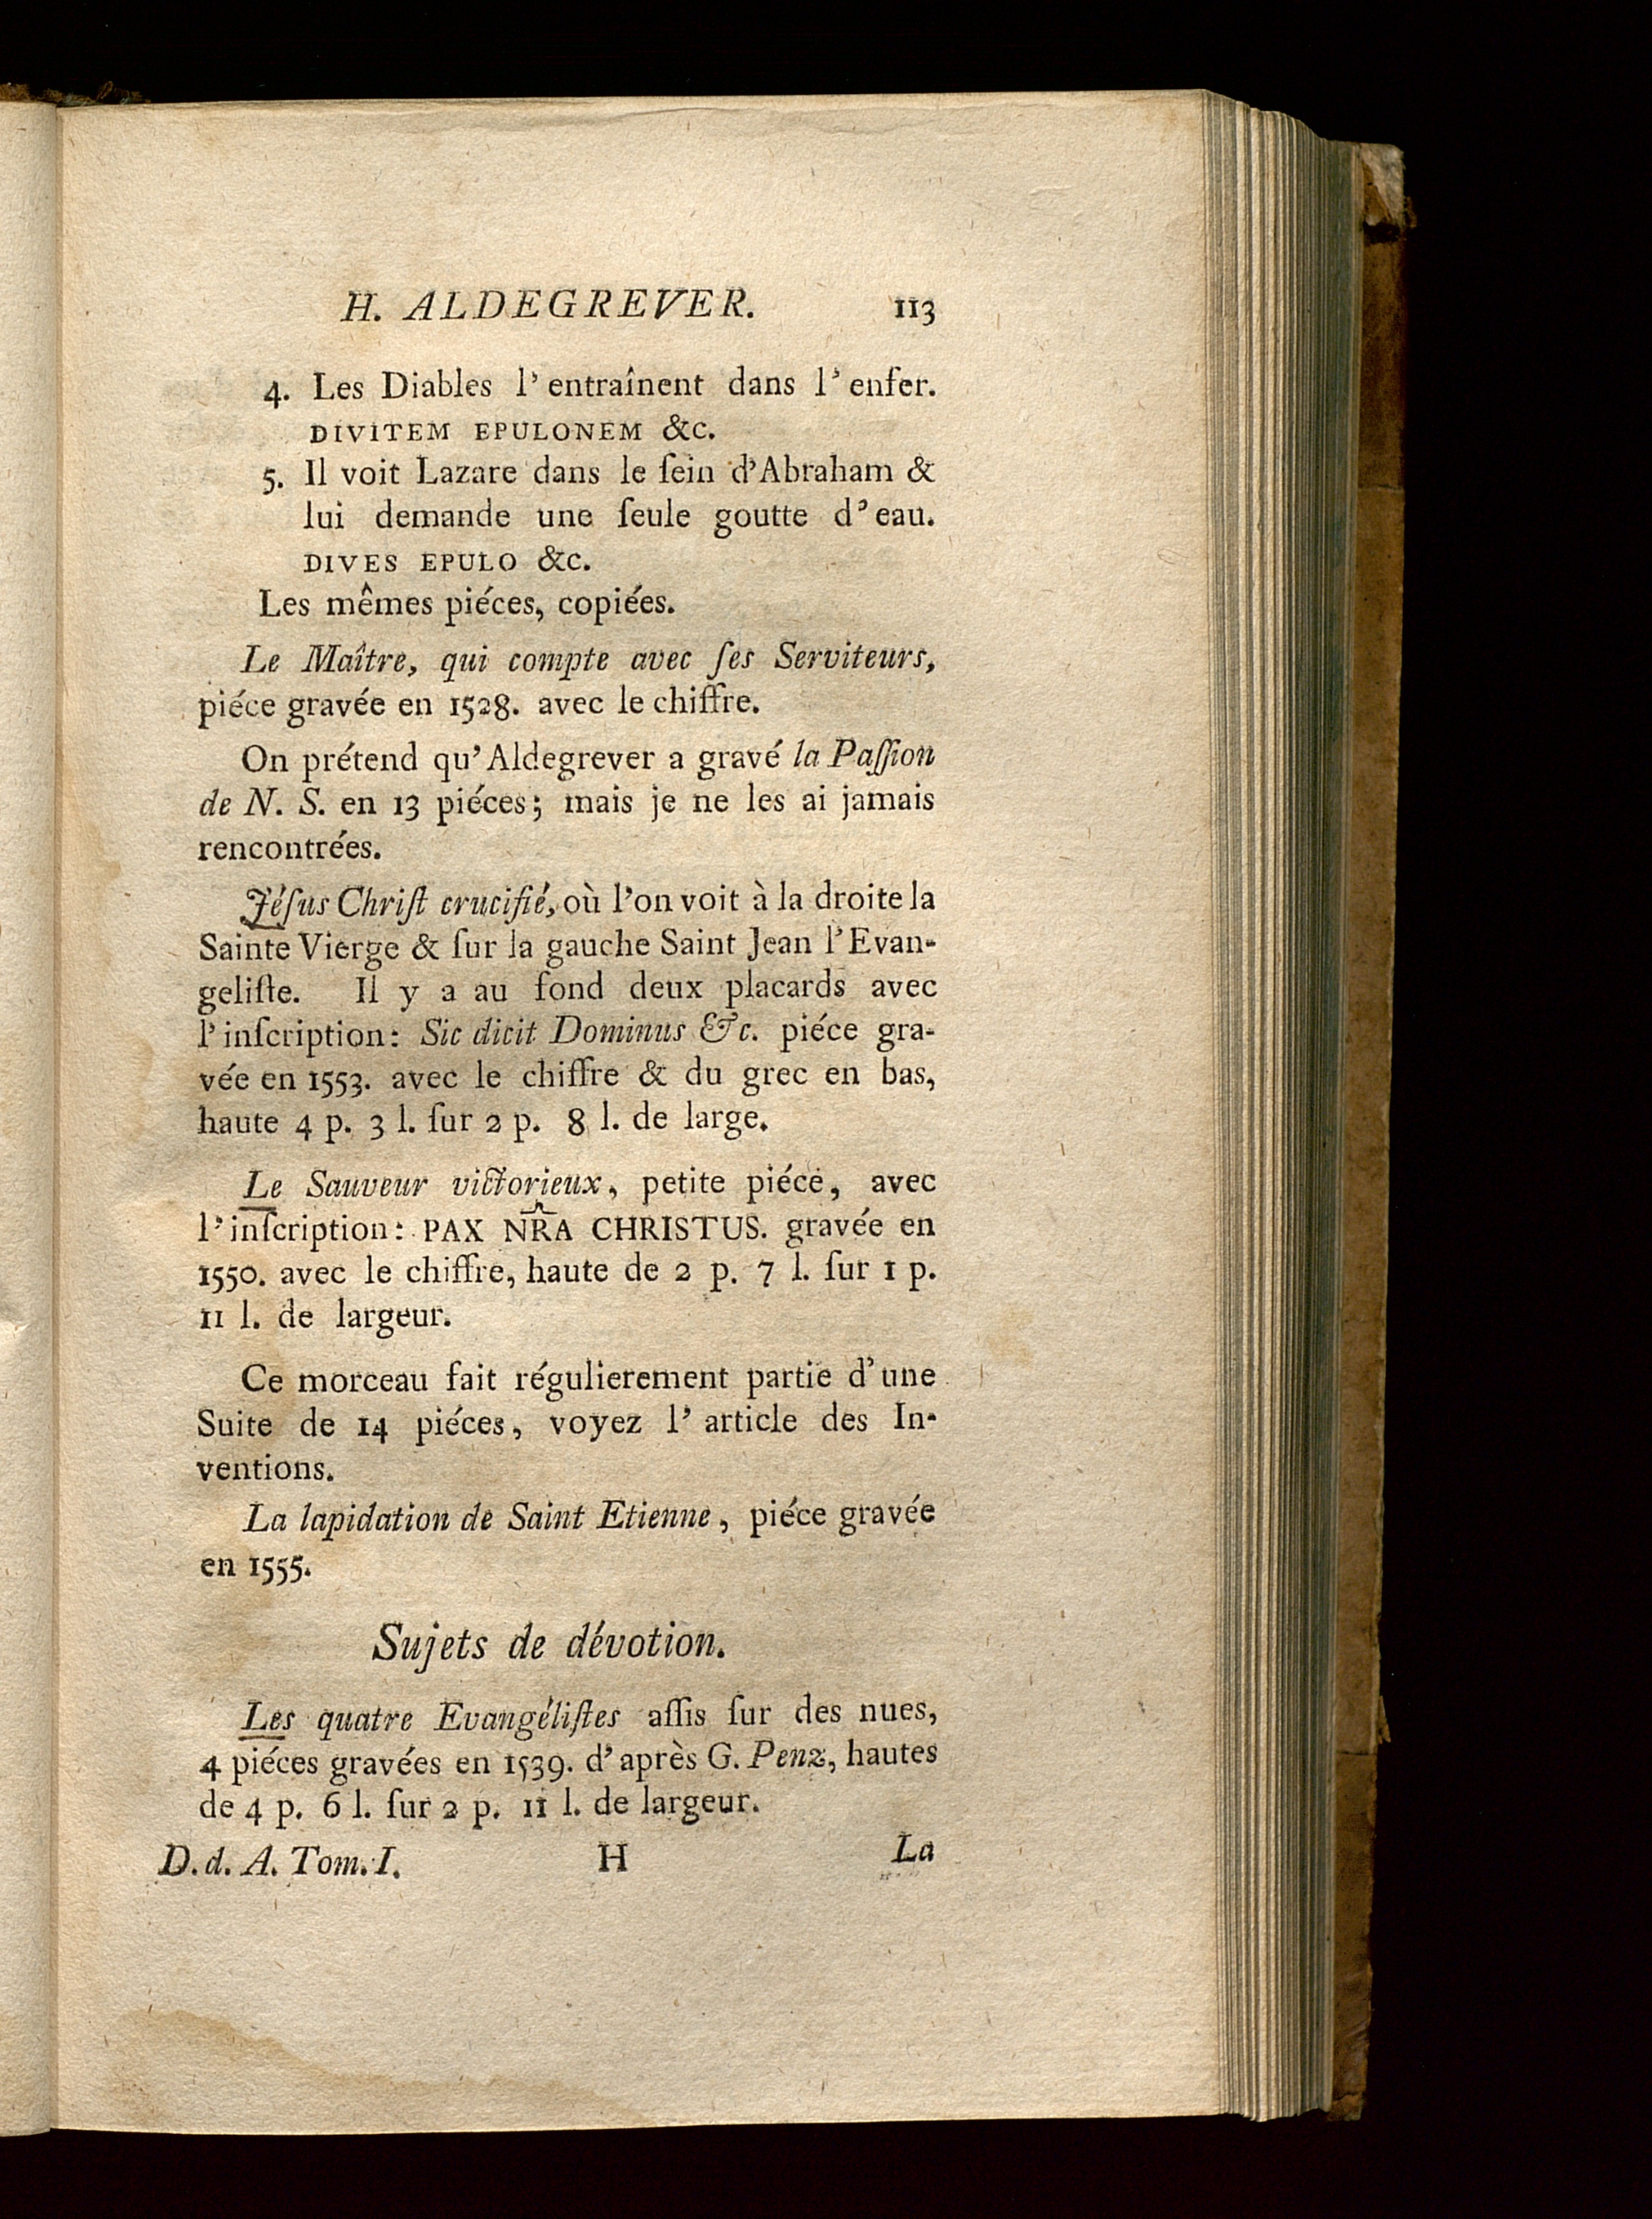 H. ALDEGREVER. 113
4. Les Diables l'entraînent dans l'enfer.
DIVITEM EPULONEM &c.
5. Il voit Lazare dans le ſein d'Abraham &
lui demande une ſeule goutte d'eau.
DIVES EPULO &c.
Les mêmes piéces, copiées.
Le Maître, qui compte avec ſes Serviteurs,
piéce gravée en 1528. avec le chiffre.
On prétend qu'Aldegrever a gravé la Paſſion
de N. S. en 13 piéces; mais je ne les ai jamais
rencontrées.
Jéſus Chriſt crucifié, où l'on voit à la droite la
Sainte Vierge & ſur la gauche Saint Jean l'Evan-
geliſte. Il y a au fond deux placards avec
l'inſcription: Sic dicit Dominus &c. piéce gra-
vée en 1553. avec le chiffre & du grec en bas,
haute 4 p. 3 l. ſur 2 p. 8 l. de large.
Le Sauveur victorieux, petite piéce, avec
l'inſcription: PAX NRA CHRISTUS. gravée en
1550. avec le chiffre, haute de 2 p. 7 l. ſur 1 p.
11 l. de largeur.
Ce morceau fait régulierement partie d'une
Suite de 14 piéces, voyez l'article des In-
ventions.
La lapidation de Saint Etienne, piéce gravée
en 1555.
Sujets de dévotion.
Les quatre Evangéliſtes aſſis ſur des nues,
4 piéces gravées en 1539. d'après G. Penz, hautes
de 4 p. 6 l. ſur 2 p. 11 l. de largeur.
D. d. A. Tom. I. H La